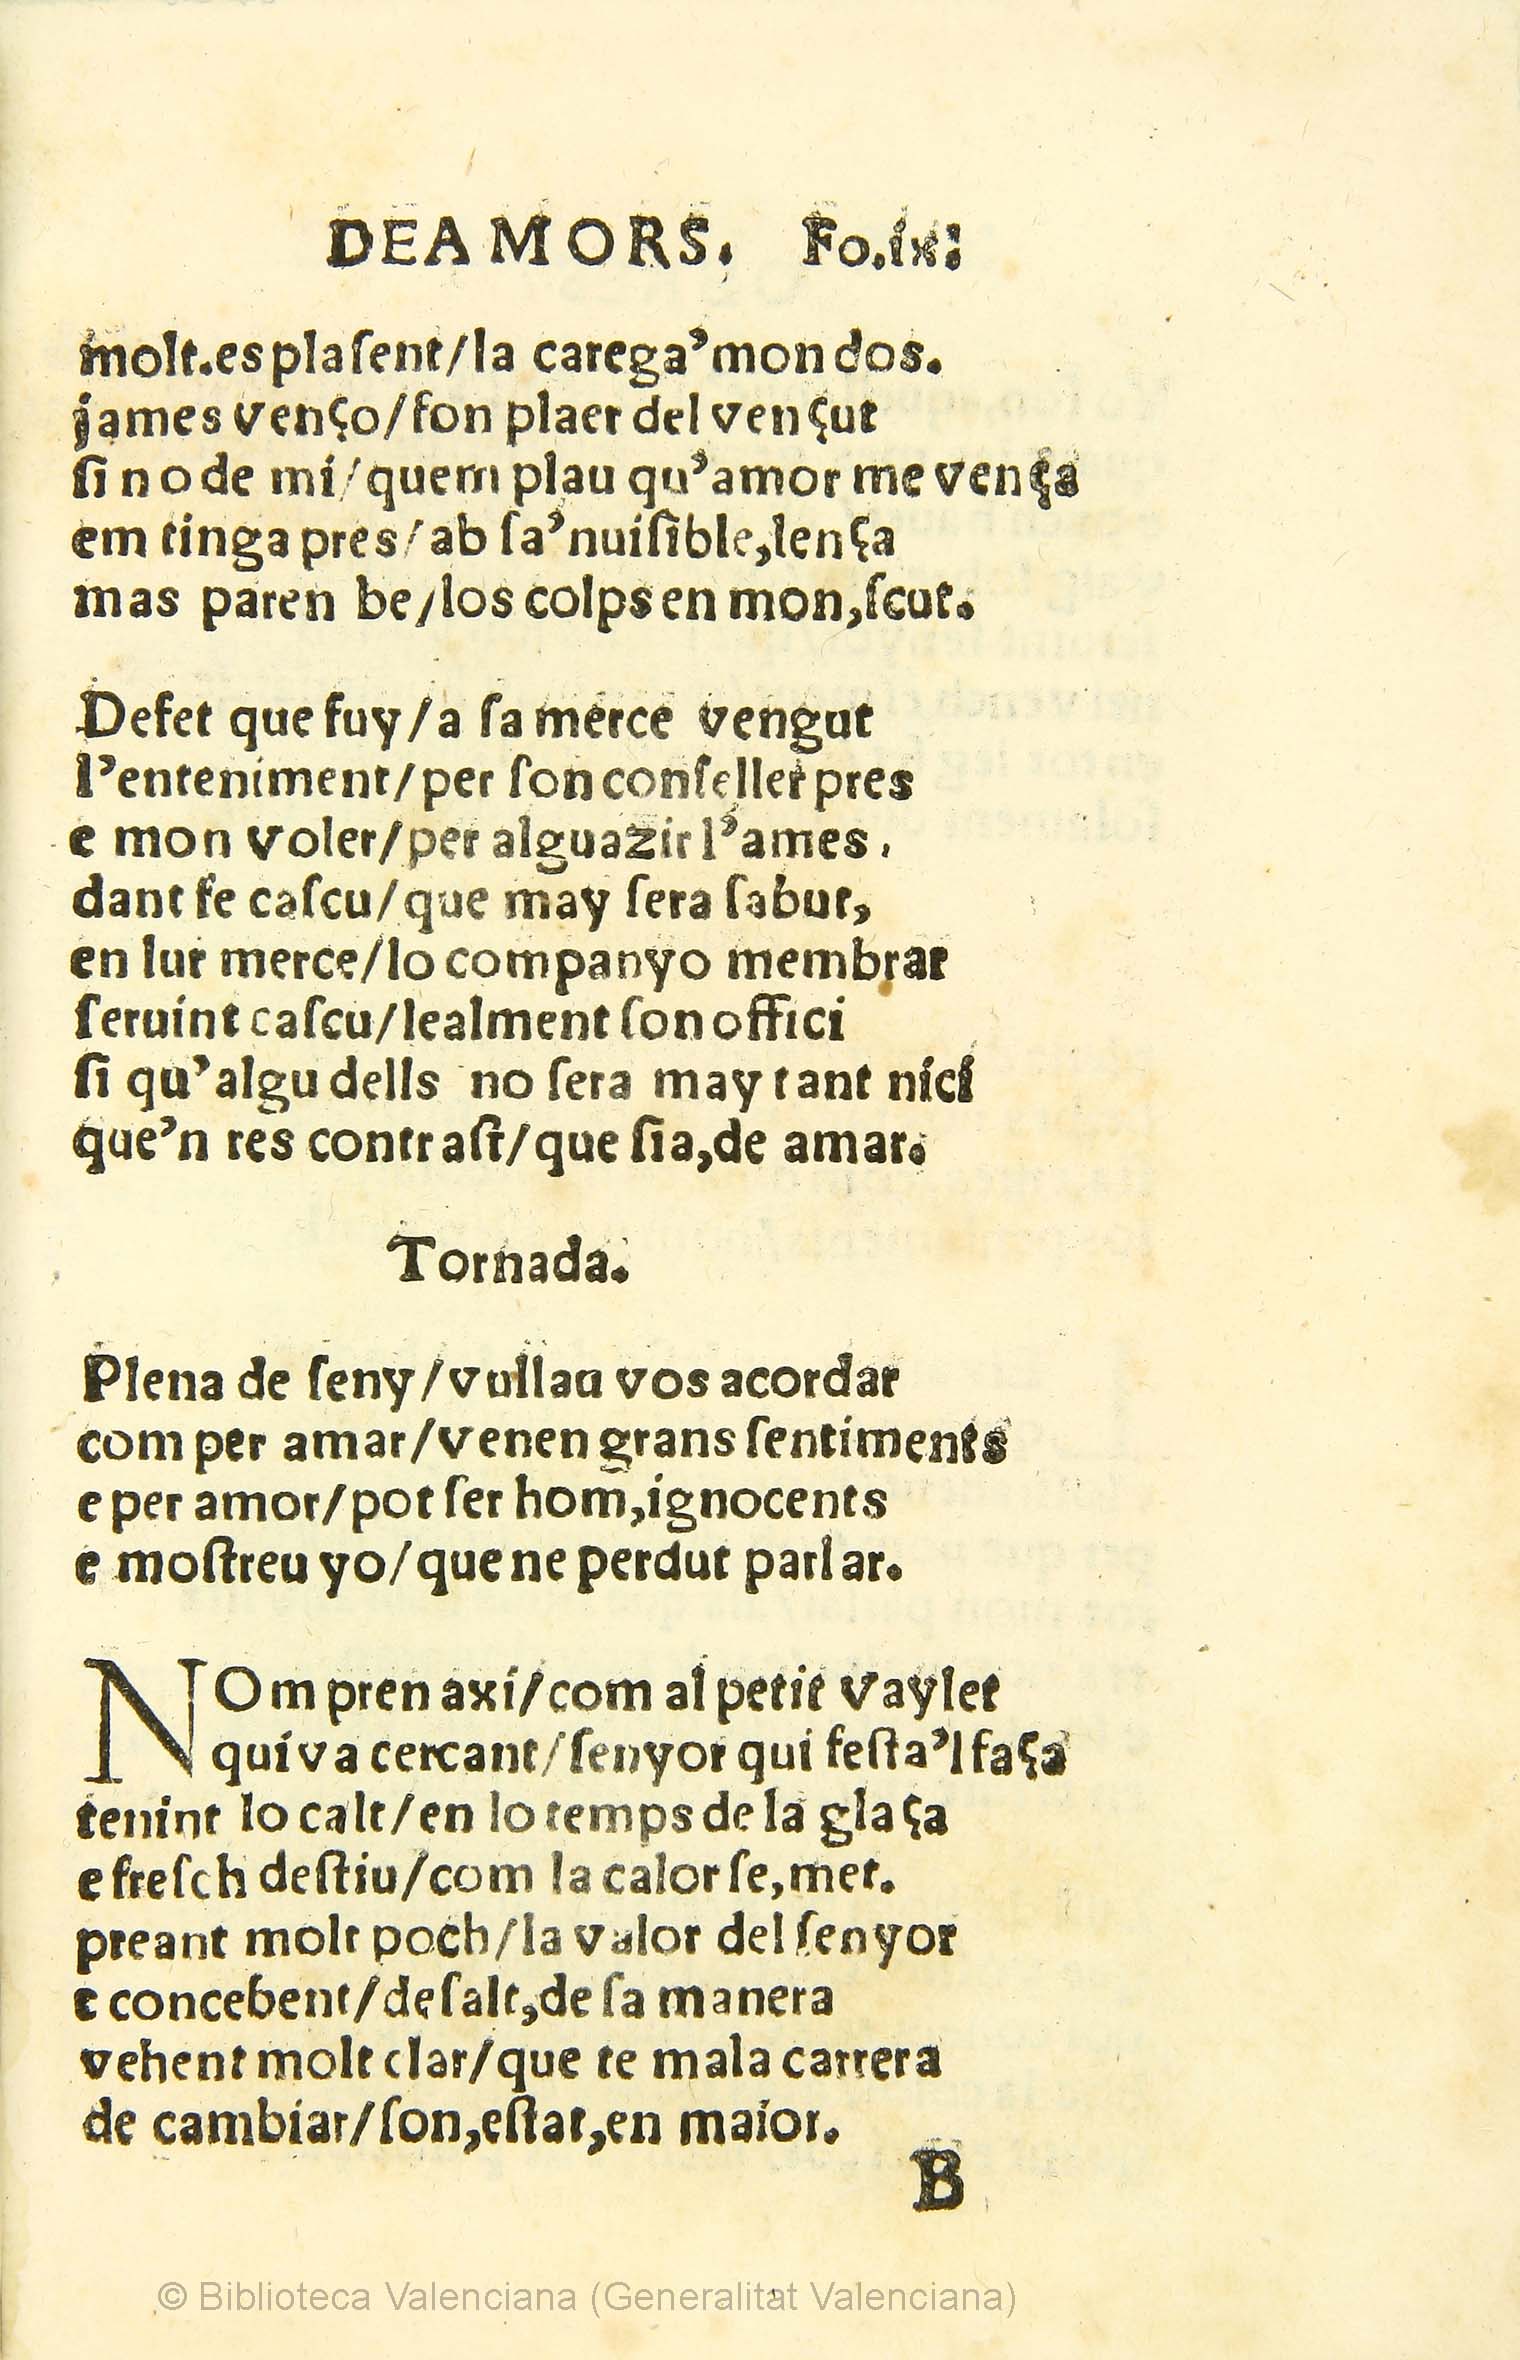 DE AMORS. Fo.ix:
molt.es plaſent/la carega’mon dos.
james venço/fon plaer del vençut
ſi no de mi/quem plau qu’amor me vença
em tinga pres/ab ſa’nuiſible,lença
mas paren be/los colps en mon,ſcut.
Defet que fuy/a ſa merce vengut
l’enteniment/per ſon conſeller pres
e mon voler/per alguazir l’ames.
dant fe caſcu/que may ſera ſabut,
en lur merce/lo companyo membrar
ſeruint caſcu/lealment ſon offici
ſi qu’algu dells no ſera may tant nici
que’n res contraſt/que ſia,de amar.
Tornada.
Plena de ſeny/vullau vos acordar
com per amar/venen grans ſentiments
e per amor/pot ſer hom,ignocents
e moſtreu yo/que ne perdut parlar.
NOm pren axi/com al petit vaylet
qui va cercant/ſenyor qui feſta’l faça
tenint lo calt/en lo temps de la glaça
e freſch deſtiu/com la calor ſe,met.
preant molt poch/la valor del ſenyor
e concebent/deſalt,de ſa manera
vehent molt clar/que te mala carrera
de cambiar/ſon,eſtat,en maior.
B
© Biblioteca Valenciana (Generalitat Valenciana)